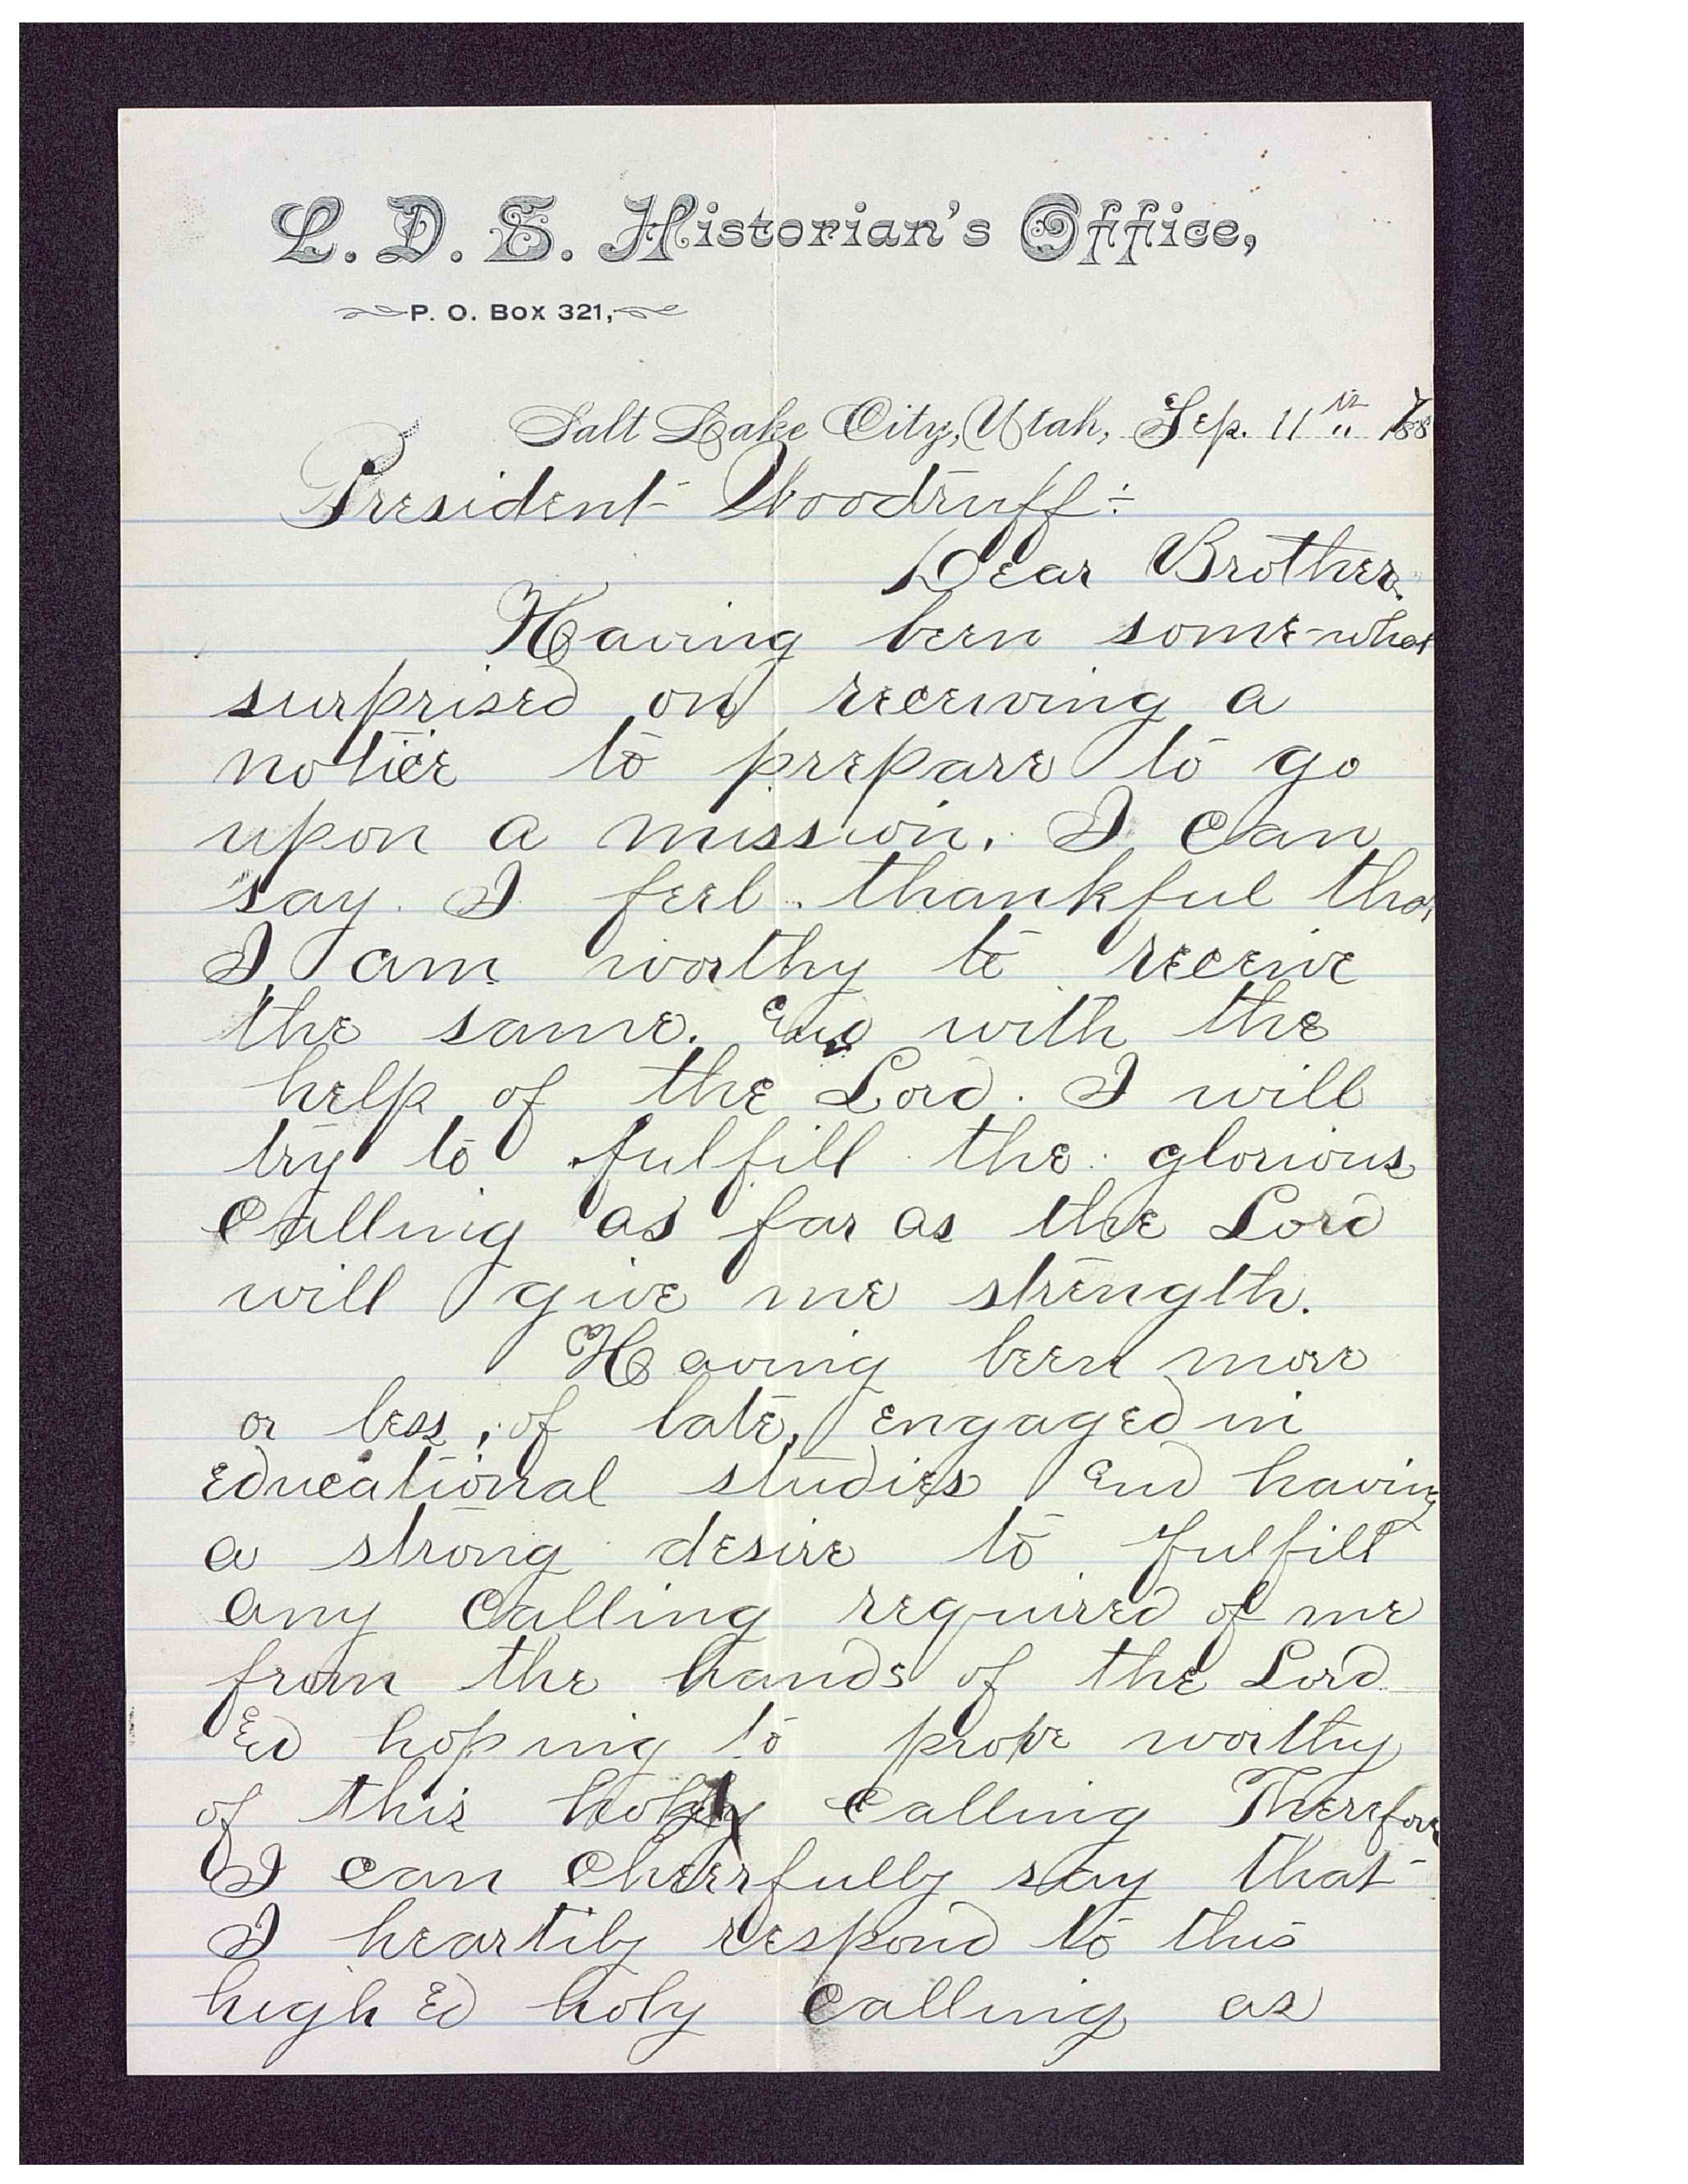 L. D. S. Historian's Office,
P. O. Box 321,
Salt Lake City, Utah, Sep. 11th 188
President Woodruff:
Dear Brother.
Having been some-what
surprised on receiving a
notice to prepare to go
upon a mission. I can
say. I feel thankful tha
I am worthy to receive
the same. End with the
help of the Lord. I will
try to fulfill the glorious
calling as far as the Lord
will give me strength.
Having been more
or less, of late, engaged in
educational studies End having
a strong desire to fulfill
any calling required of me
from the hands of the Lord
Ed hoping to prove worthy
of this holy calling Therefore
I can cheerfully say that
I heartily respond to this
high Ed holy calling as